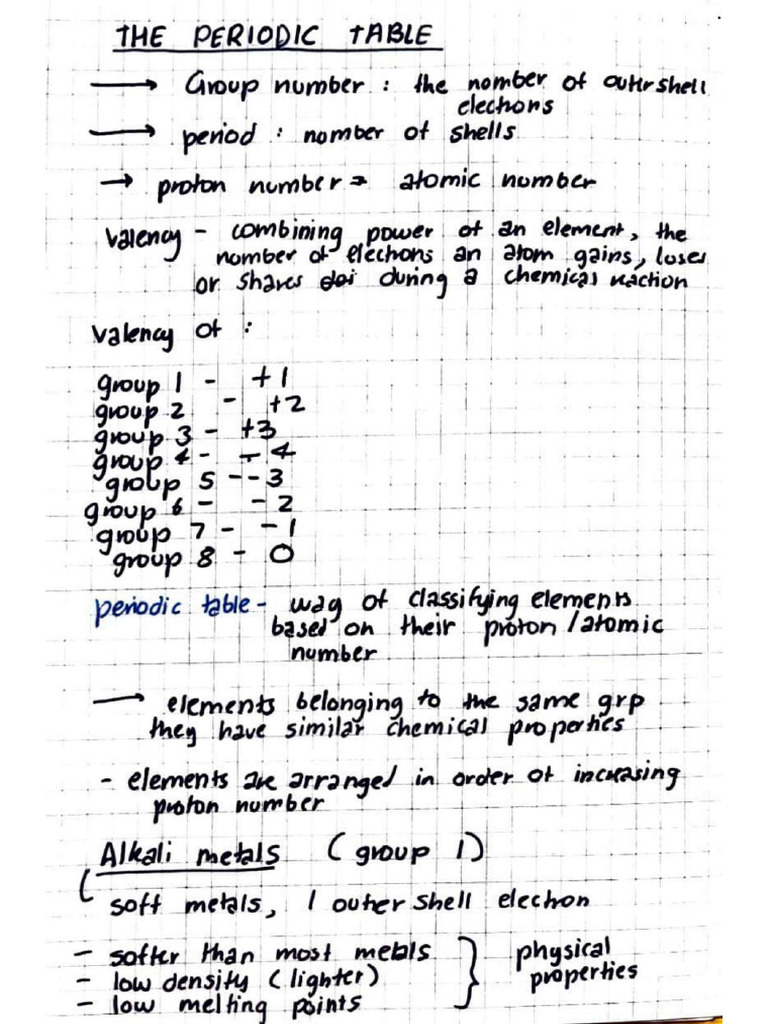 THE PERIODIC TABLE
→ Group number : the nomber of outer shell
elechons
→ period : nomber of shells
→ proton number = atomic number
Valency - combining power of an element, the
number of elechons an atom gains, loses
or shares during a chemical reaction
Valency of :
group 1 - +1
group 2 - +2
group 3 - +3
group 4 - ∓4
group 5 - -3
group 6 - -2
group 7 - -1
group 8 - 0
periodic table - way of classifying elements
based on their proton /atomic
number
→ elements belonging to the same grp
they have similar chemical properties
- elements are arranged in order of increasing
proton number
Alkali metals (group 1)
soft metals, 1 outer shell elechon
- softer than most metals
- low density (lighter)
- low melting points
physical
properties